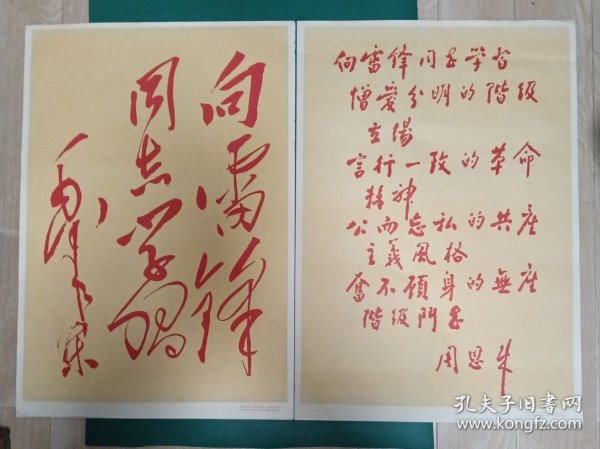 向雷锋
同志学习
毛泽东
向雷锋同志学习
憎爱分明的阶级
立場
言行一致的革命
精神
公而忘私的共产
主義風格
奮不顧身的無产
階級鬥志
周恩来
孔夫子旧书网
www.kongfz.com